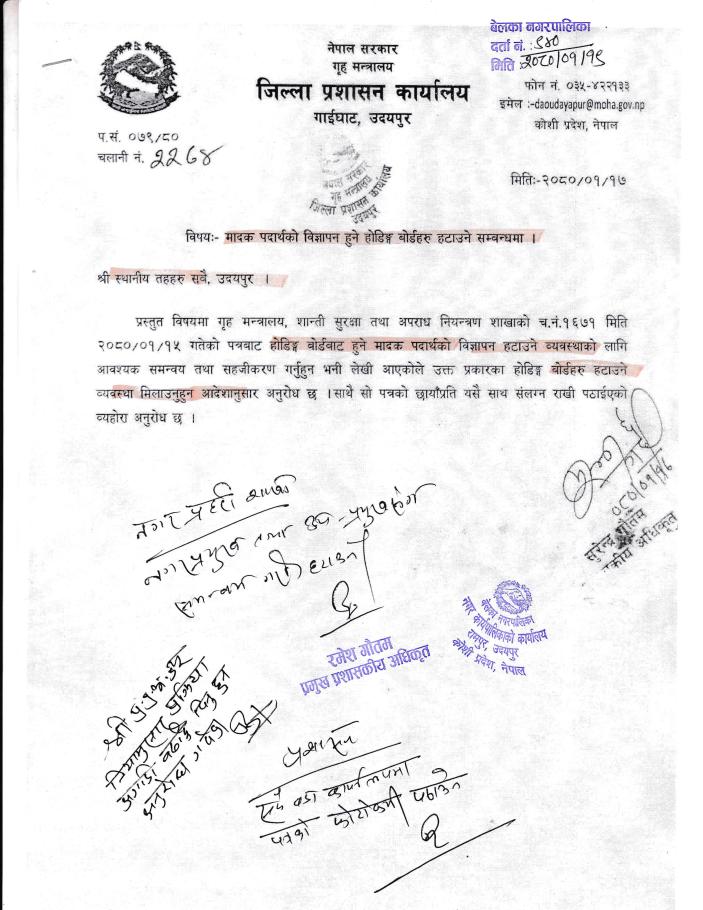 नेपाल सरकार
गृह मन्त्रालय
जिल्ला प्रशासन कार्यालय
गाईघाट, उदयपुर
बेलका नगरपालिका
दर्ता नं. : ९४०
मिति २०८०/०१/१९
फोन नं. ०३५-४२२१३३
इमेल :-daoudayapur@moha.gov.np
कोशी प्रदेश, नेपाल
प.सं. ०७९/८०
चलानी नं. 2264
नेपाल सरकार
गृह मन्त्रालय
जिल्ला प्रशासन कार्यालय
उदयपुर
मितिः-२०८०/०१/१७
विषयः- मादक पदार्थको विज्ञापन हुने होडिङ्ग बोर्डहरु हटाउने सम्बन्धमा ।
श्री स्थानीय तहहरु सवै, उदयपुर ।
प्रस्तुत विषयमा गृह मन्त्रालय, शान्ती सुरक्षा तथा अपराध नियन्त्रण शाखाको च.नं.१६७१ मिति
२०८०/०१/१५ गतेको पत्रबाट होडिङ्ग बोर्डवाट हुने मादक पदार्थको विज्ञापन हटाउने व्यवस्थाको लागि
आवश्यक समन्वय तथा सहजीकरण गर्नुहुन भनी लेखी आएकोले उक्त प्रकारका होडिङ्ग बोर्डहरु हटाउने
व्यवस्था मिलाउनुहुन आदेशानुसार अनुरोध छ ।साथै सो पत्रको छायाँप्रति यसै साथ संलग्न राखी पठाईएको
व्यहोरा अनुरोध छ ।
०८०/०१/१८
सुरेन्द्र गौतम
अधिकृत
नगर प्रहरी शाखा
नगर प्रमुख तथा उप-प्रमुखसंग
समन्वय गरी हटाउने
रमेश गौतम
प्रमुख प्रशासकीय अधिकृत
बेलका नगरपालिका
नगर कार्यपालिकाको कार्यालय
रामपुर, उदयपुर
कोशी प्रदेश, नेपाल
श्री प्र.प्र.अ.
नियमानुसार प्रक्रिया
अगाडी
अनुरोध
प्रशासन
सबै वडा कार्यालयमा
पत्रको फोटोकपी पठाउने